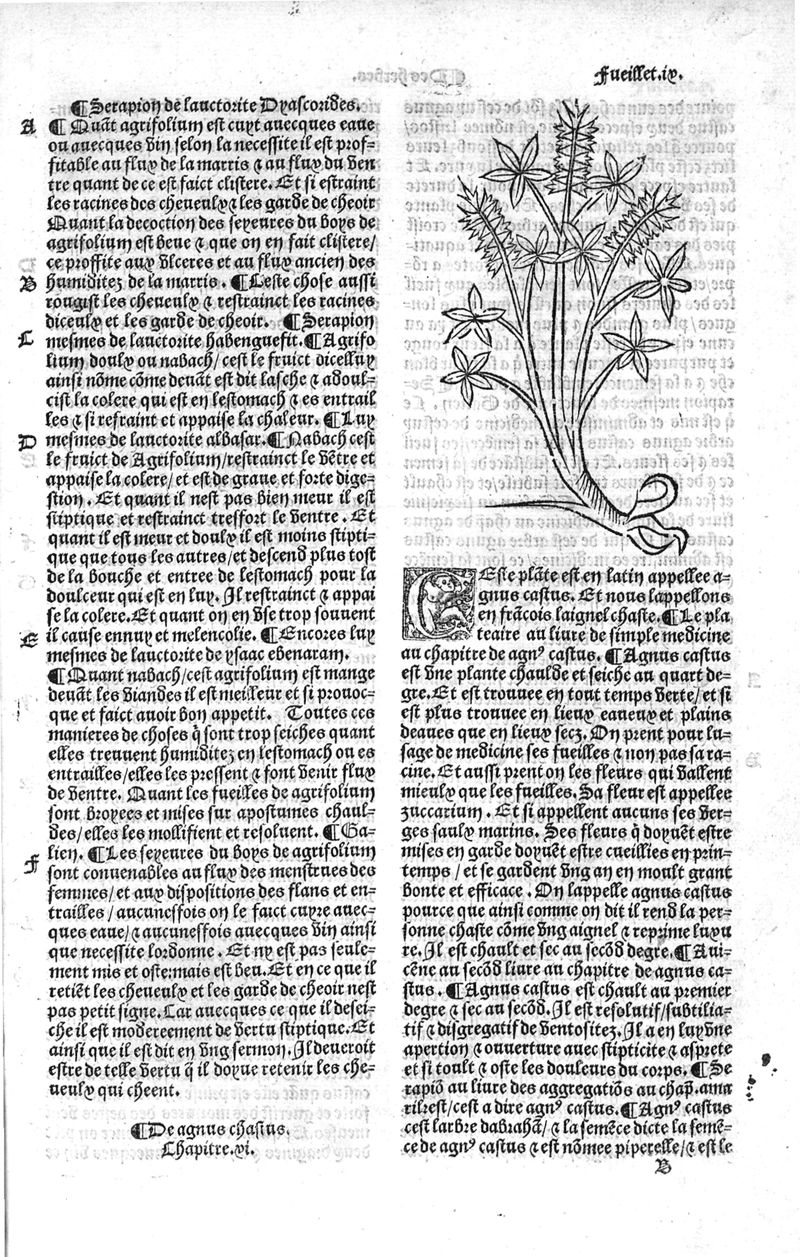 Fueillet.ix.
¶Serapion de lauctorite Dyascorides.
A ¶Quāt agrifolium est cuyt auecques eaue
ou auecques vin selon la necessite il est prof-
fitable au flux de la marris ⁊ au flux du ven
tre quant de ce est faict clistere. Et si estraint
les racines des cheueulx ⁊ les garde de cheoir
Quant la decoction des seyeures du boys de
agrifolium est beue ⁊ que on en fait clistere/
ce proffite aux vlceres et au flux ancien des
B humiditez de la marris. ¶Ceste chose aussi
rougist les cheueulx ⁊ restrainct les racines
diceulx et les garde de cheoir. ¶Serapion
C mesmes de lauctorite habenguefit. ¶Agrifo
lium doulx ou nabach/cest le fruict dicelluy
ainsi nōme cōme deuāt est dit lasche ⁊ adoul-
cist la colere qui est en lestomach ⁊ es entrail
les ⁊ si refraint et appaise la chaleur. ¶Luy
D mesmes de lauctorite albasar. ¶Nabach cest
le fruict de Agrifolium/restrainct le vētre et
appaise la colere/ et est de graue et forte dige-
stion. Et quant il nest pas bien meur il est
stiptique et restrainct tresfort le ventre. Et
quant il est meur et doulx il est moins stipti-
que que tous les autres/et descend plus tost
de la bouche et entree de lestomach pour la
doulceur qui est en luy. Il restrainct ⁊ appai
se la colere. Et quant on en vse trop souuent
E il cause ennuy et melencolie. ¶Encores luy
mesmes de lauctorite de ysaac ebenaram.
¶Quant nabach/cest agrifolium est mange
deuāt les viandes il est meilleur et si prouoc-
que et faict auoir bon appetit. Toutes ces
manieres de choses q̄ sont trop seiches quant
elles treuuent humiditez en lestomach ou es
entrailles/elles les pressent ⁊ font venir flux
de ventre. Quant les fueilles de agrifolium
sont broyees et mises sur apostumes chaul-
des/elles les mollifient et resoluent. ¶Ga-
F lien. ¶Les seyeures du boys de agrifolium
sont conuenables au flux des menstrues des
femmes/et aux dispositions des flans et en-
trailles/aucunesfois on le faict cuyre auec-
ques eaue/⁊ aucunesfois auecques vin ainsi
que necessite lordonne. Et ny est pas seule-
ment mis et oste:mais est beu. Et en ce que il
retiēt les cheueulx et les garde de cheoir nest
pas petit signe. Car auecques ce que il desei-
che il est modereement de vertu stiptique. Et
ainsi que il est dit en vng sermon. Il deueroit
estre de telle vertu q̄ il doyue retenir les che-
ueulx qui cheent.
¶De agnus chastus.
Chapitre.xi.
CEste plāte est en latin appellee a-
gnus castus. Et nous lappellons
en frācois laignel chaste. ¶Le pla
teaire au liure de simple medicine
au chapitre de agnꝰ castus. ¶Agnus castus
est vne plante chaulde et seiche au quart de-
gre. Et est trouuee en tout temps verte/et si
est plus trouuee en lieux eaueux et plains
deaues que en lieux secz. On prent pour lu-
sage de medicine ses fueilles ⁊ non pas sa ra-
cine. Et aussi prent on les fleurs qui vallent
mieulx que les fueilles. Sa fleur est appellee
zuccarium. Et si appellent aucuns ses ver-
ges saulx marins. Ses fleurs q̄ doyuēt estre
mises en garde doyuēt estre cueillies en prin-
temps/ et se gardent vng an en moult grant
bonte et efficace. On lappelle agnus castus
pource que ainsi comme on dit il rend la per-
sonne chaste cōme vng aignel ⁊ reprime luxu
re. Il est chault et sec au secōd degre. ¶Aui-
cēne au secōd liure au chapitre de agnus ca-
stus. ¶Agnus castus est chault au premier
degre ⁊ sec au secōd. Il est resolutif/subtilia-
tif ⁊ disgregatif de ventositez. Il a en luy vne
apertion ⁊ ouuerture auec stipticite ⁊ asprete
et si toult ⁊ oste les douleurs du corps. ¶Se
rapiō au liure des aggregatiōs au chap̄. ama
rilrest/cest a dire agnꝰ castus. ¶Agnꝰ castus
cest larbre dabrahā/ ⁊ la semēce dicte la semē-
ce de agnꝰ castus ⁊ est nōmee piperelle/⁊ est le
B